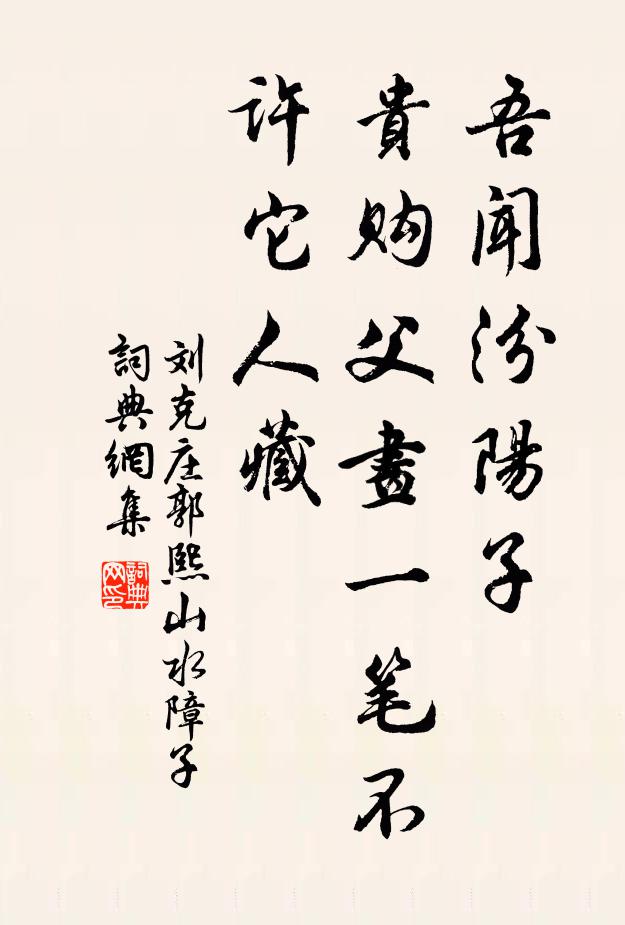 吾聞汾陽子
貴购父畫一笔不
許它人藏
刘克庄郭熙山水障子
詞典網集
詞典网印